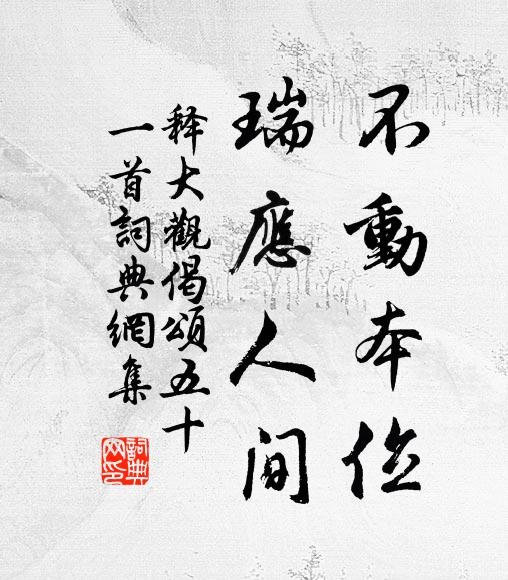 不動本位
瑞應人間
釋大觀偈頌五十
一首詞典網集
詞典网印